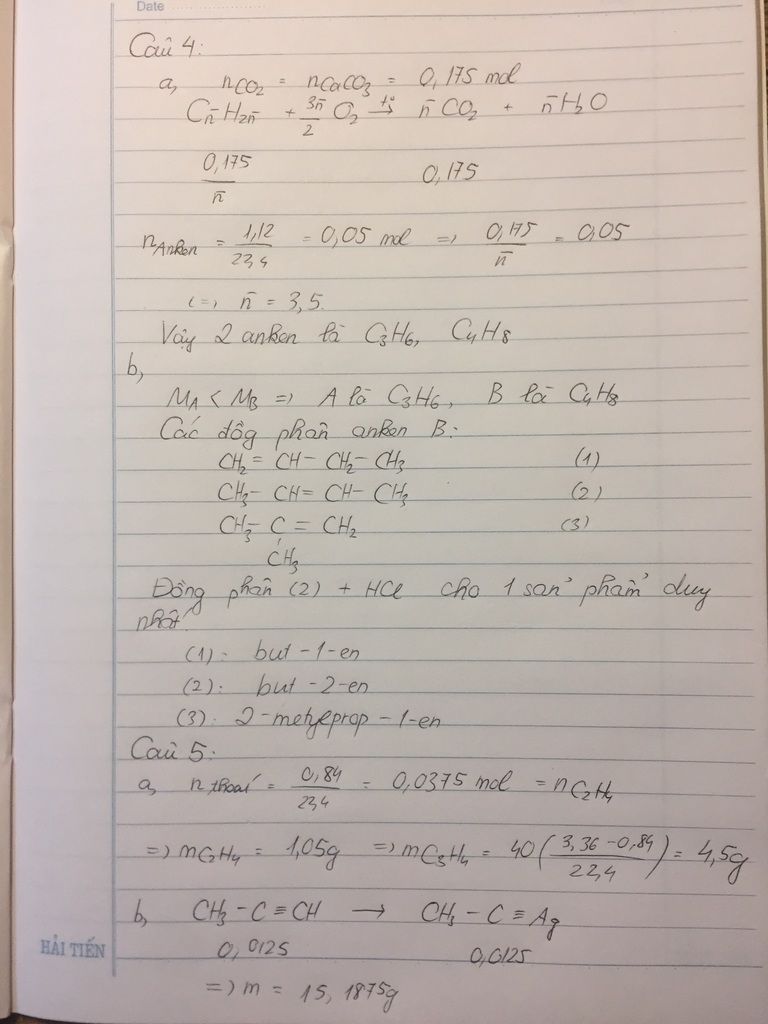 Date
Câu 4:
a, nCO2 = nCaCO3 = 0,175 mol
Cn̄H2n̄ + 3n̄/2 O2 →t° n̄CO2 + n̄H2O
0,175/n̄ 0,175
nAnken = 1,12/22,4 = 0,05 mol => 0,175/n̄ = 0,05
<=> n̄ = 3,5.
Vậy 2 anken là C3H6, C4H8
b,
MA < MB => A là C3H6, B là C4H8
Các đồg phân anken B:
CH2 = CH - CH2 - CH3 (1)
CH3 - CH = CH - CH3 (2)
CH3 - C = CH2 (3)
CH3
Đồng phân (2) + HCl cho 1 sản phẩm duy
nhất.
(1): but-1-en
(2): but-2-en
(3): 2-metylprop-1-en
Câu 5:
a, nthoát = 0,84/22,4 = 0,0375 mol = nC2H4
=> mC2H4 = 1,05g => mC3H4 = 40(3,36-0,84/22,4) = 4,5g
b, CH3 - C ≡ CH → CH3 - C ≡ Ag
0,0125 0,0125
=> m = 15,1875g
HẢI TIẾN